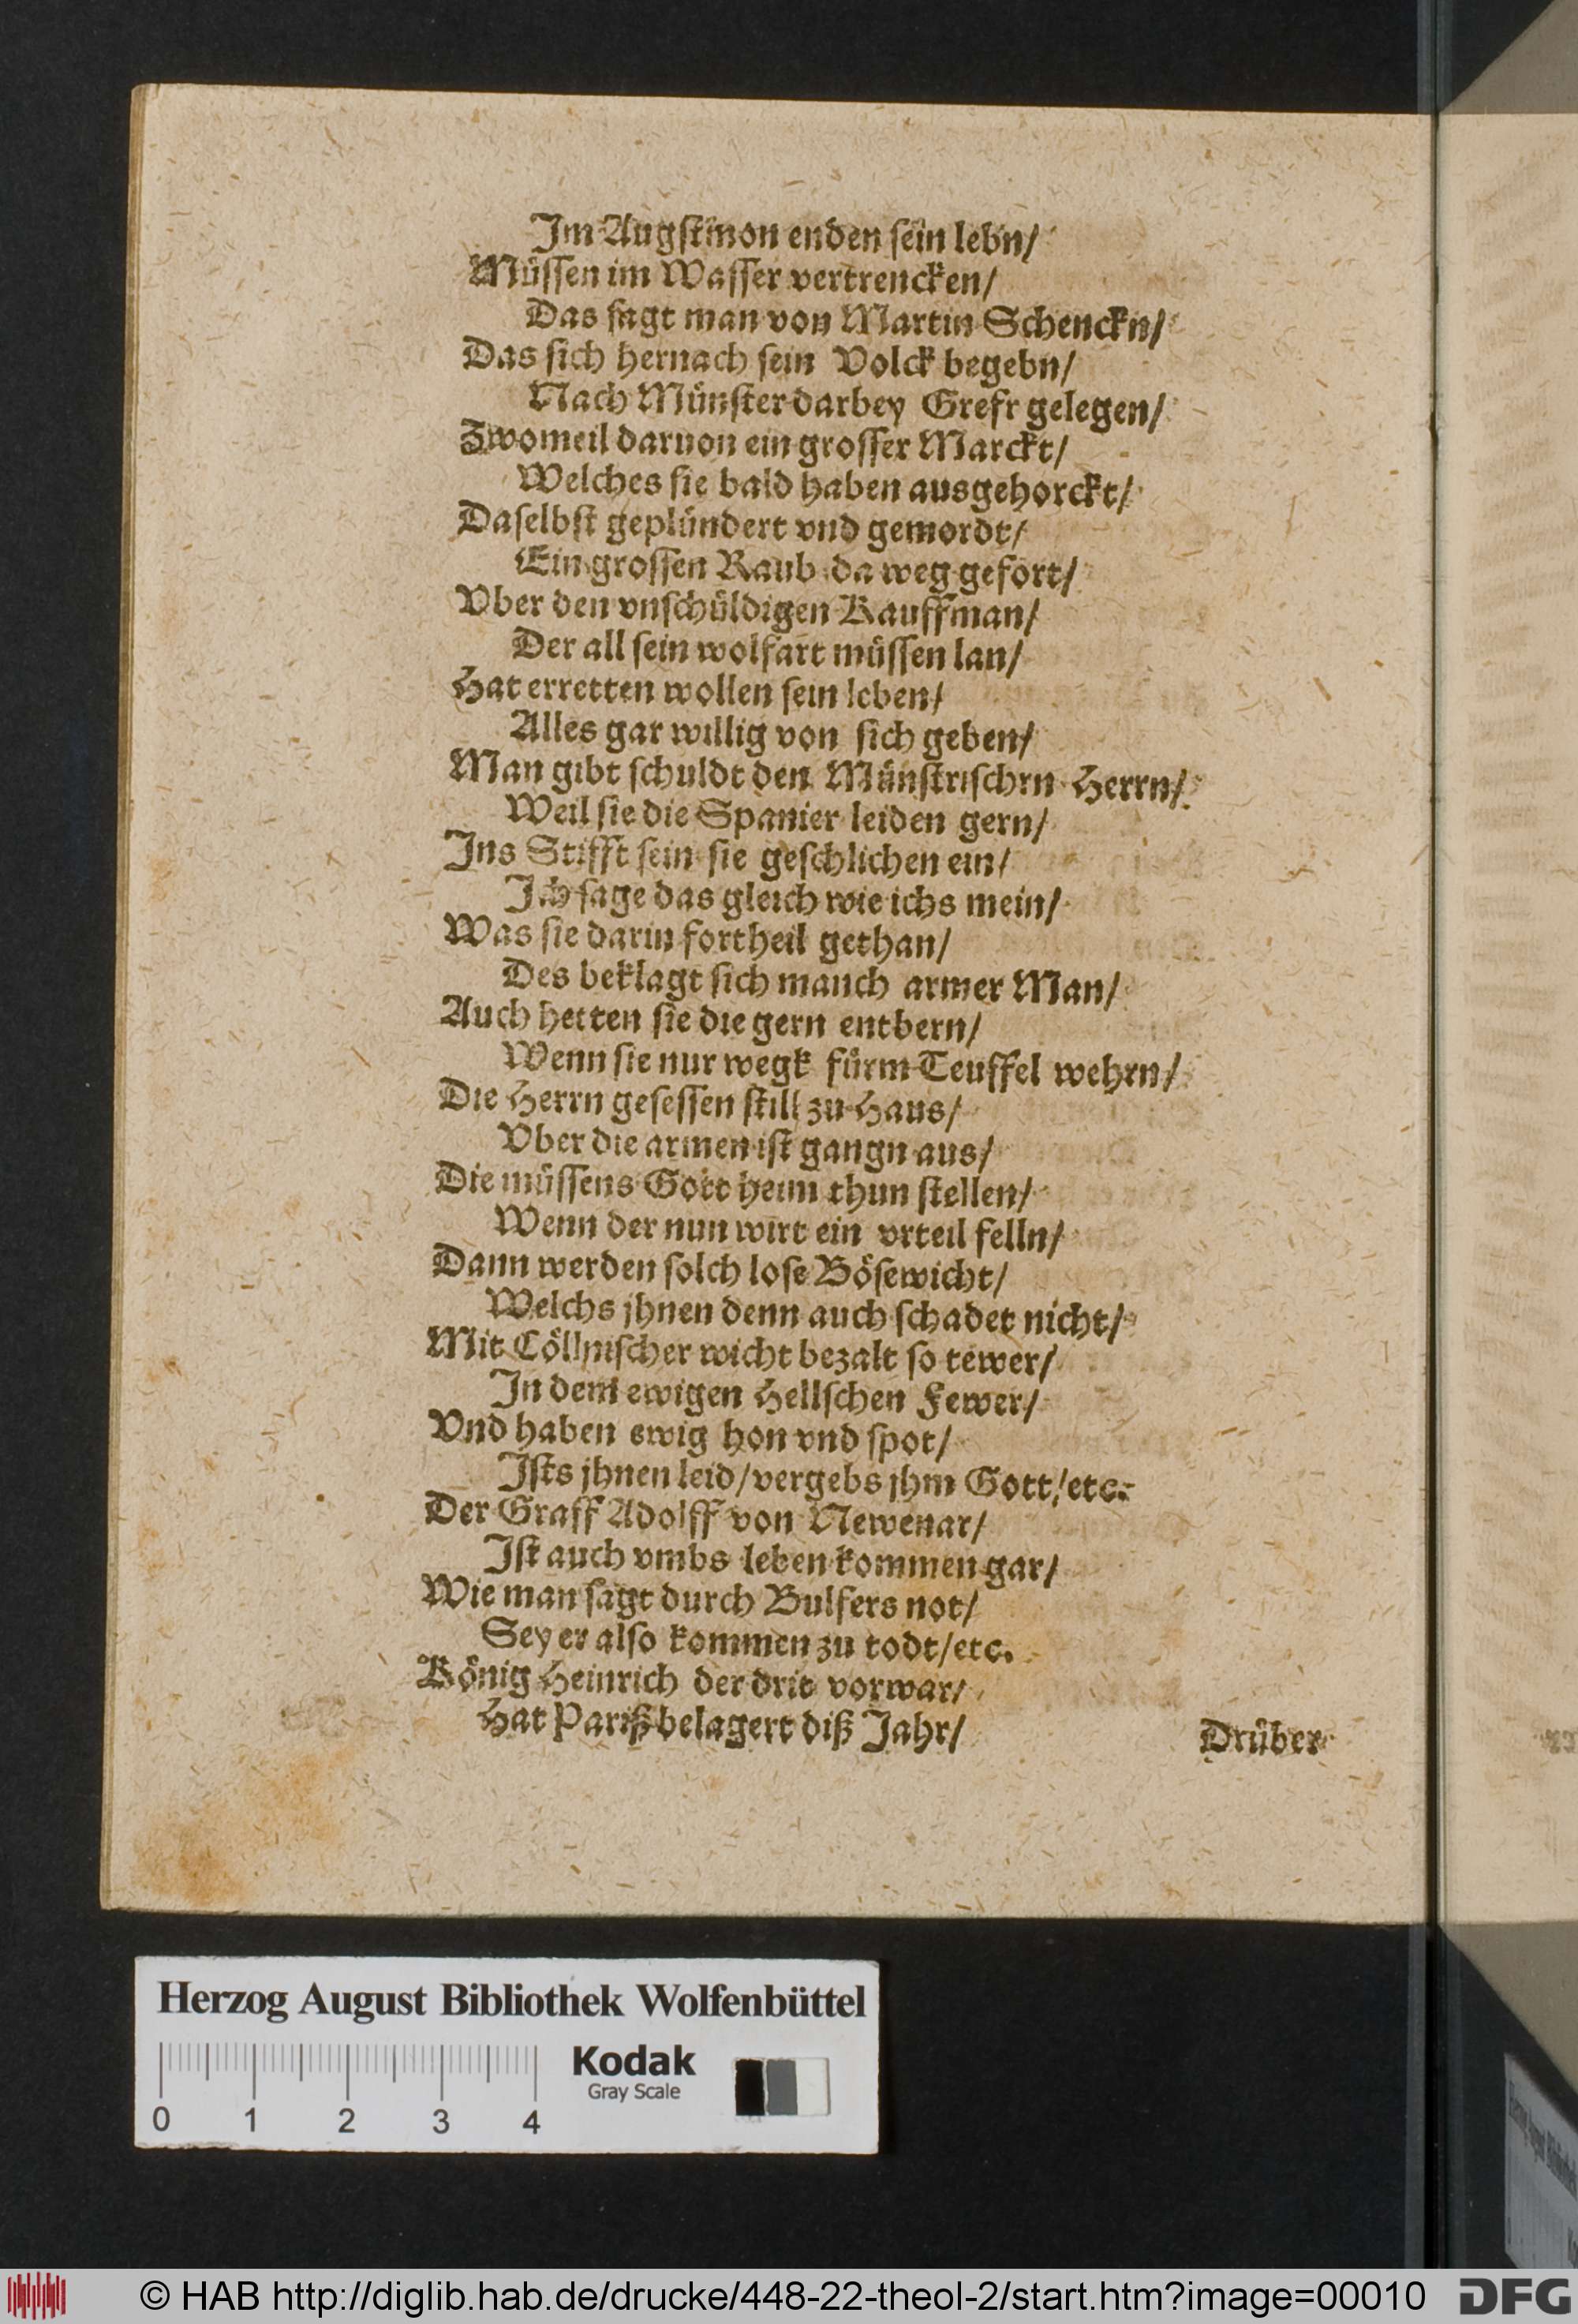 Im Augstmon enden sein lebn/
Müssen im Wasser vertrencken/
Das sagt man von Martin Schenckn/
Das sich hernach sein Volck begebn/
Nach Münster darbey Grefr gelegen/
Zwomeil daruon ein grosser Marckt/
Welches sie bald haben ausgehorckt/
Daselbst geplündert vnd gemordt/
Ein grossen Raub da weg gefört/
Vber den vnschüldigen Kauffman/
Der all sein wolfart müssen lan/
Hat erretten wollen sein leben/
Alles gar willig von sich geben/
Man gibt schuldt den Münstrischrn Herrn/
Weil sie die Spanier leiden gern/
Ins Stifft sein sie geschlichen ein/
Ich sage das gleich wie ichs mein/
Was sie darin fortheil gethan/
Des beklagt sich manch armer Man/
Auch hetten sie die gern entbern/
Wenn sie nur wegk fürm Teuffel wehrn/
Die Herrn gesessen still zu Haus/
Vber die armen ist gangn aus/
Die müssens Gott heim thun stellen/
Wenn der nun wirt ein vrteil felln/
Dann werden solch lose Bösewicht/
Welchs jhnen denn auch schadet nicht/
Mit Cöllnischer wicht bezalt so tewer/
In dem ewigen Hellschen Fewer/
Vnd haben ewig hon vnd spot/
Ists jhnen leid/vergebs jhm Gott/etc.
Der Graff Adolff von Newenar/
Ist auch vmbs leben kommen gar/
Wie man sagt durch Bulfers not/
Sey er also kommen zu todt/etc.
König Heinrich der drit vorwar/
Hat Pariß belagert diß Jahr/
Drüber
Herzog August Bibliothek Wolfenbüttel
Kodak
Gray Scale
0 1 2 3 4
© HAB http://diglib.hab.de/drucke/448-22-theol-2/start.htm?image=00010
DFG